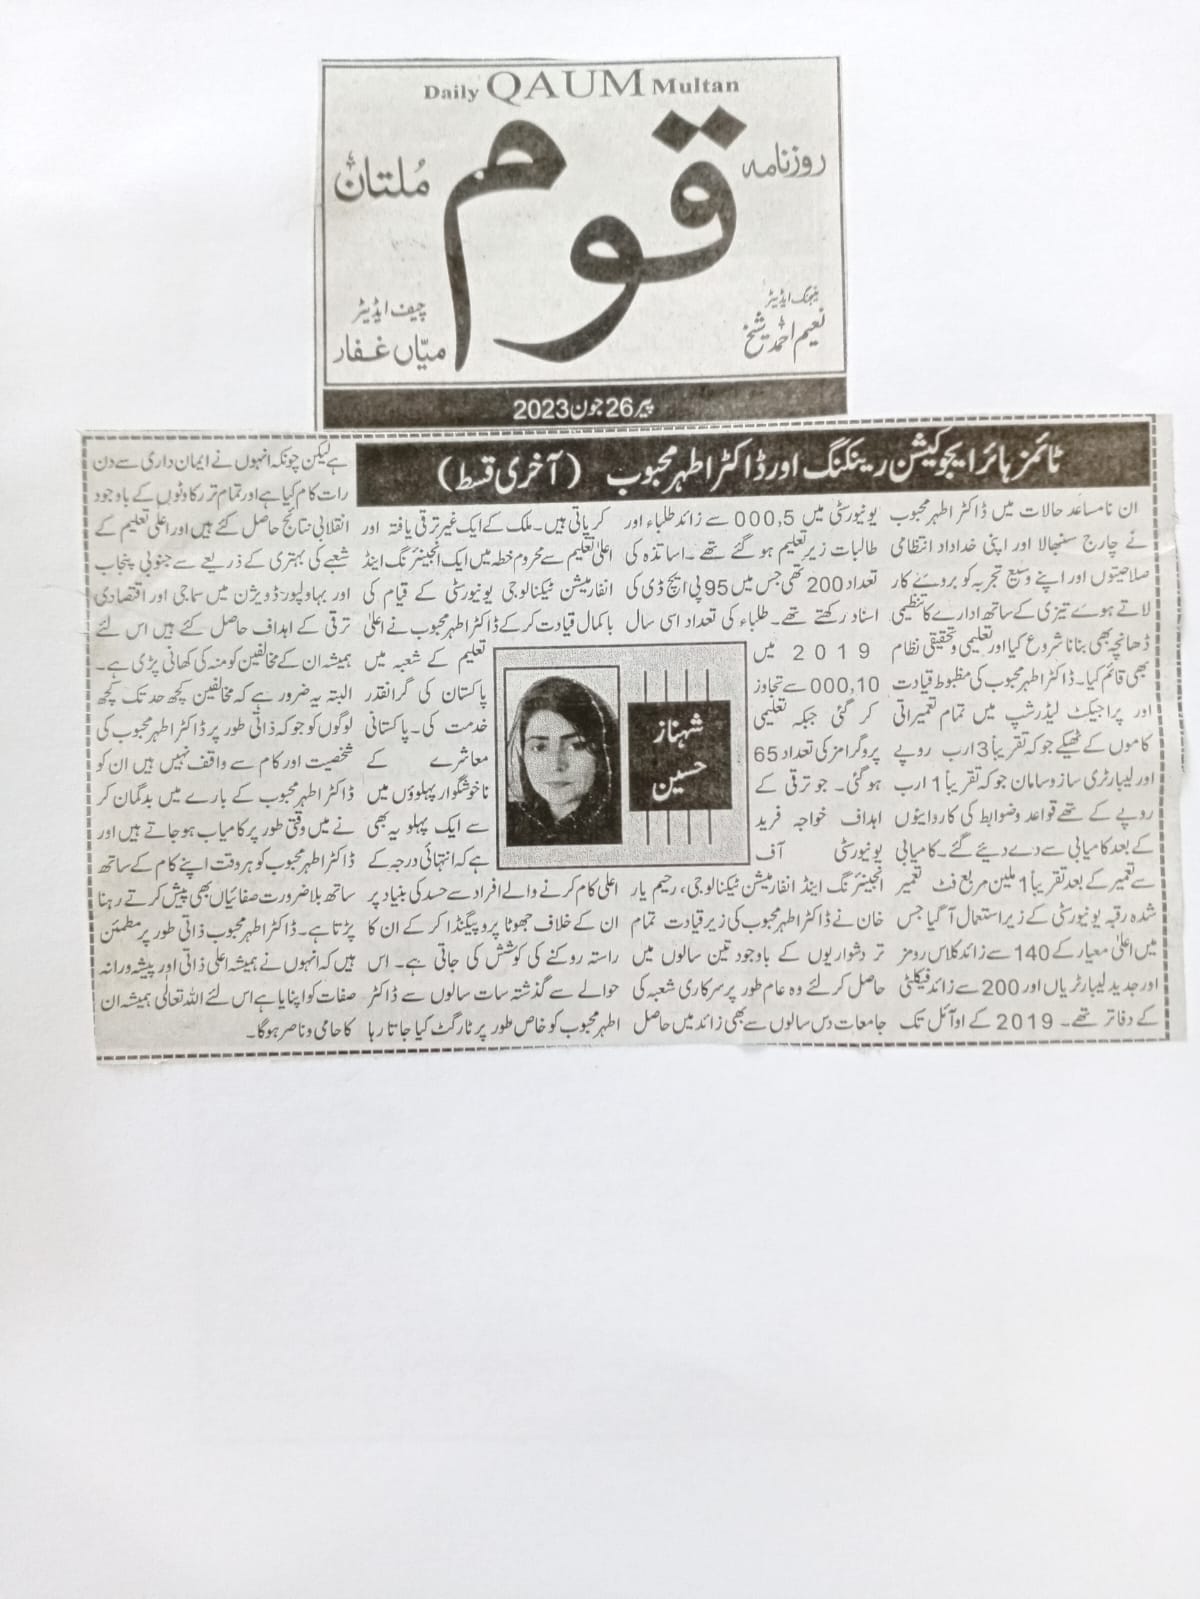 Daily QAUM Multan
روزنامہ
قوم
ملتان
مینجنگ ایڈیٹر
نعیم احمد شیخ
چیف ایڈیٹر
میاں غفار
پیر 26 جون 2023
ٹائمز ہائر ایجوکیشن رینکنگ اور ڈاکٹر اطہر محبوب (آخری قسط)
ان نامساعد حالات میں ڈاکٹر اطہر محبوب
نے چارج سنبھالا اور اپنی خداداد انتظامی
صلاحیتوں اور اپنے وسیع تجربہ کو بروئے کار
لاتے ہوے تیزی کے ساتھ ادارے کا تنظیمی
ڈھانچہ بھی بنانا شروع کیا اور تعلیمی و تحقیقی نظام
بھی قائم کیا۔ ڈاکٹر اطہر محبوب کی مظبوط قیادت
اور پراجیکٹ لیڈرشپ میں تمام تعمیراتی
کاموں کے ٹھیکے جو کہ تقریباً 3 ارب روپے
اور لیبارٹری ساز و سامان جو کہ تقریباً 1 ارب
روپے کے تھے قواعد و ضوابط کی کاروائیوں
کے بعد کامیابی سے دے دیئے گئے۔ کامیابی
سے تعمیر کے بعد تقریباً 1 ملین مربع فٹ تعمیر
شدہ رقبہ یونیورسٹی کے زیر استعمال آ گیا جس
میں اعلیٰ معیار کے 140 سے زائد کلاس رومز
اور جدید لیبارٹریاں اور 200 سے زائد فیکلٹی
کے دفاتر تھے۔ 2019 کے اوائل تک
یونیورسٹی میں 5,000 سے زائد طلباء اور
طالبات زیر تعلیم ہو گئے تھے۔ اساتذہ کی
تعداد 200 تھی جس میں 95 پی ایچ ڈی کی
اسناد رکھتے تھے۔ طلباء کی تعداد اسی سال
2019 میں
10,000 سے تجاوز
کر گئی جبکہ تعلیمی
پروگرامز کی تعداد 65
ہو گئی۔ جو ترقی کے
اہداف خواجہ فرید
یونیورسٹی آف
انجینئرنگ اینڈ انفارمیشن ٹیکنالوجی، رحیم یار
خان نے ڈاکٹر اطہر محبوب کی زیر قیادت تمام
تر دشواریوں کے باوجود تین سالوں میں
حاصل کر لئے وہ عام طور پر سرکاری شعبہ کی
جامعات دس سالوں سے بھی زائد میں حاصل
شہناز
حسین
کر پاتی ہیں۔ ملک کے ایک غیر ترقی یافتہ اور
اعلیٰ تعلیم سے محروم خطہ میں ایک انجینئرنگ اینڈ
انفارمیشن ٹیکنالوجی یونیورسٹی کے قیام کی
باکمال قیادت کر کے ڈاکٹر اطہر محبوب نے اعلیٰ
تعلیم کے شعبہ میں
پاکستان کی گرانقدر
خدمت کی۔ پاکستانی
معاشرے کے
ناخوشگوار پہلوؤں میں
سے ایک پہلو یہ بھی
ہے کہ انتہائی درجہ کے
اعلی کام کرنے والے افراد سے حسد کی بنیاد پر
ان کے خلاف جھوٹا پروپیگنڈا کر کے ان کا
راستہ روکنے کی کوشش کی جاتی ہے۔ اس
حوالے سے گذشتہ سات سالوں سے ڈاکٹر
اطہر محبوب کو خاص طور پر ٹارگٹ کیا جاتا رہا
ہے لیکن چونکہ انہوں نے ایمان داری سے دن
رات کام کیا ہے اور تمام تر رکاوٹوں کے باوجود
انقلابی نتائج حاصل کئے ہیں اور اعلی تعلیم کے
شعبے کی بہتری کے ذریعے سے جنوبی پنجاب
اور بہاولپور ڈویژن میں سماجی اور اقتصادی
ترقی کے اہداف حاصل کئے ہیں اس لئے
ہمیشہ ان کے مخالفین کو منہ کی کھانی پڑی ہے۔
البتہ یہ ضرور ہے کہ مخالفین کچھ حد تک کچھ
لوگوں کو جو کہ ذاتی طور پر ڈاکٹر اطہر محبوب کی
شخصیت اور کام سے واقف نہیں ہیں ان کو
ڈاکٹر اطہر محبوب کے بارے میں بدگمان کر
نے میں وقتی طور پر کامیاب ہو جاتے ہیں اور
ڈاکٹر اطہر محبوب کو ہر وقت اپنے کام کے ساتھ
ساتھ بلا ضرورت صفائیاں بھی پیش کرتے رہنا
پڑتا ہے۔ ڈاکٹر اطہر محبوب ذاتی طور پر مطمئن
ہیں کہ انہوں نے ہمیشہ اعلی ذاتی اور پیشہ ورانہ
صفات کو اپنایا ہے اس لئے اللہ تعالی ہمیشہ ان
کا حامی و ناصر ہوگا۔